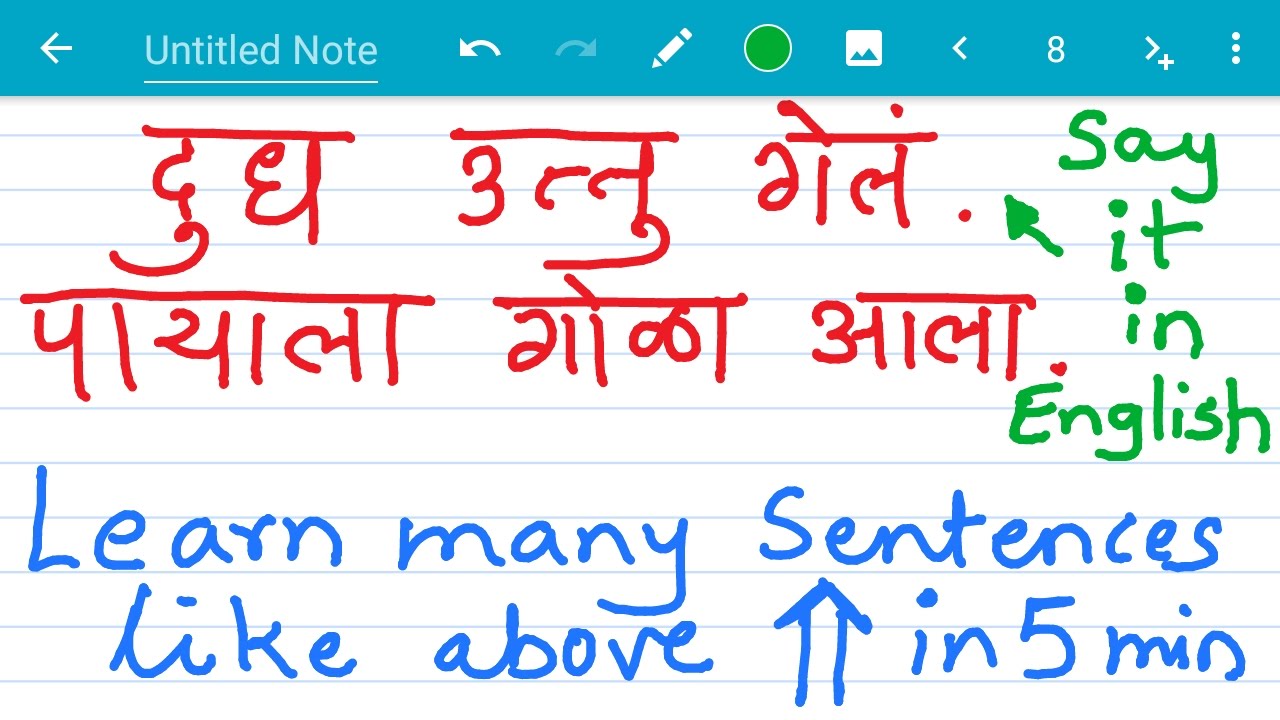 Untitled Note 8
दुध उत्तु गेलं .
पायाला गोळा आला .
Say
it
in
English
Learn many Sentences
like above in 5 min